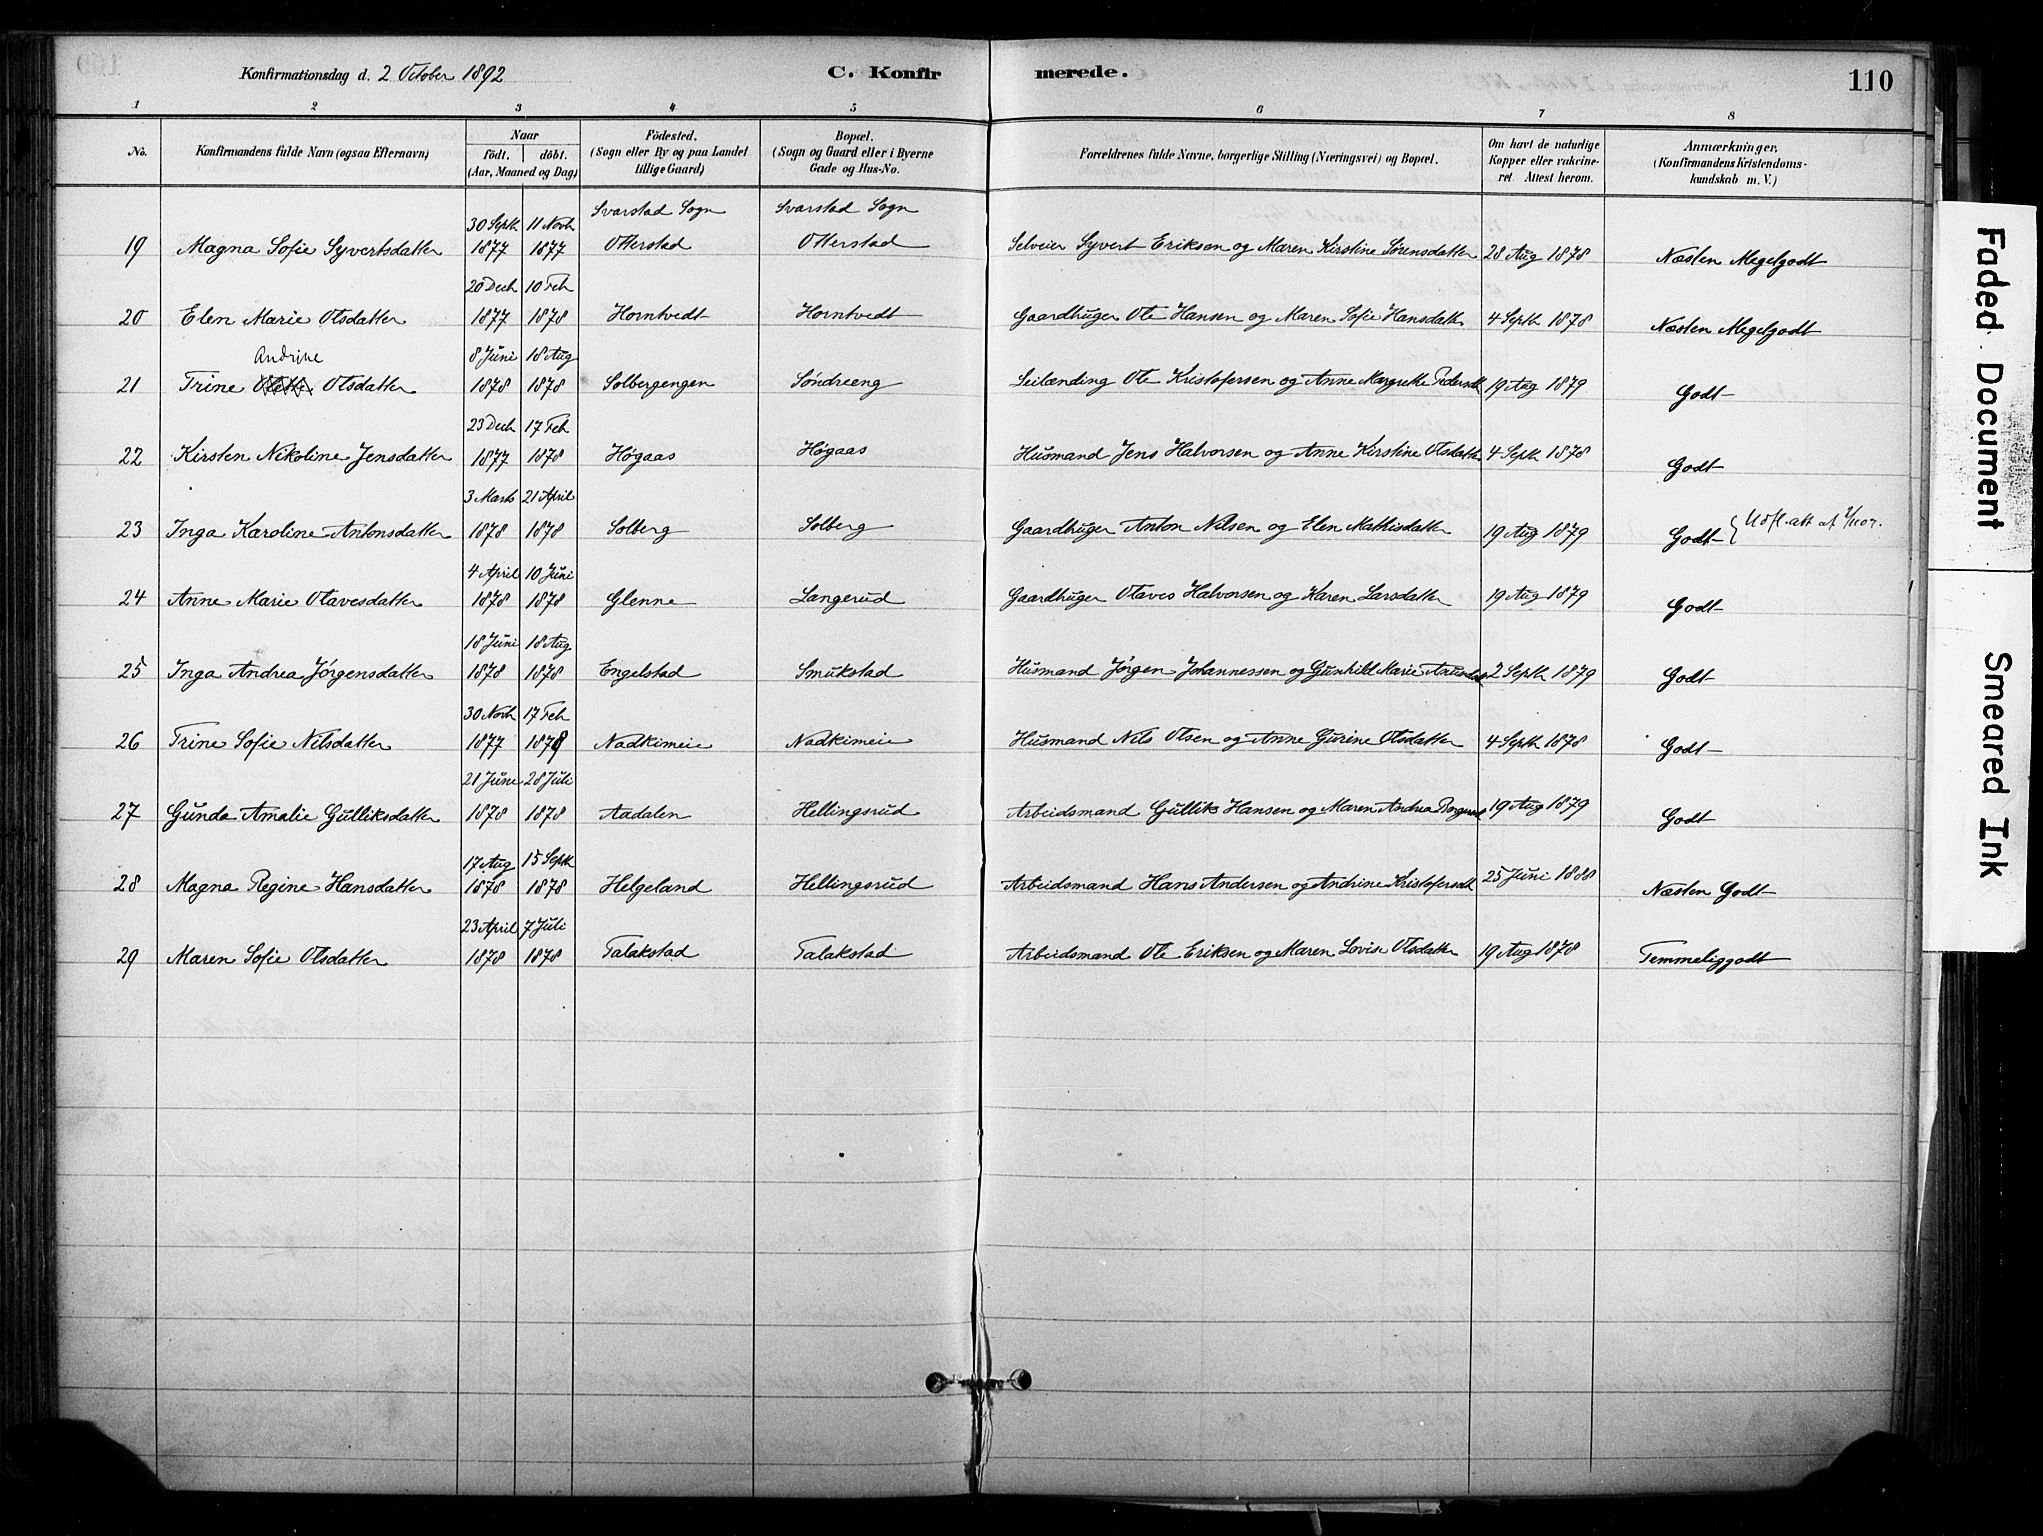 Konfirmationsdag d. 2 October 1892 C. Konfirmerede. 110
1 2 3 4 5 6 7 8
No. Konfirmandens fulde Navn (ogsaa Efternavn) Naar födt. döbt. (Aar, Maaned og Dag) Födested. (Sogn eller By og paa Landet tillige Gaard) Bopæl. (Sogn og Gaard eller i Byerne Gade og Hus-No. Forældrenes fulde Navne, borgerlige Stilling (Næringsvei) og Bopæl. Om havt de naturlige Kopper eller vakcineret. Attest herom. Anmærkninger. (Konfirmandens Kristendomskundskab m. V.)
30 Septb 11 Novb Svarstad Sogn Svarstad Sogn
19 Magna Sofie Syvertsdatter 1877 1877 Otterstad Otterstad Selveier Syvert Eriksen og Maren Kirstine Sørensdatter 28 Aug 1878 Næsten Megetgodt
20 Decb 10 Feb
20 Elen Marie Olsdatter 1877 1878 Horntvedt Horntvedt Gaardbruger Ole Hansen og Maren Sofie Hansdatter 4 Septb 1878 Næsten Megetgodt
Andrine 8 Juni 18 Aug
21 Trine Olsdatter 1878 1878 Solbergengen Söndreeng Leilænding Ole Kristofersen og Anne Margrethe Pedersdt 19 Aug 1879 Godt
23 Decb 17 Feb
22 Kirsten Nikoline Jensdatter 1877 1878 Högaas Högaas Husmand Jens Halvorsen og Anne Kirstine Olsdatter 4 Septb 1878 Godt
3 Marts 21 April
23 Inga Karoline Antonsdatter 1878 1878 Solberg Solberg Gaardbruger Anton Nilsen og Elen Mathisdatter 19 Aug 1879 Godt { Udst. att af
4 April 10 Juni
24 Anne Marie Olavesdatter 1878 1878 Glenne Langerud Gaardbruger Olaves Halvorsen og Karen Larsdatter 19 Aug 1879 Godt
18 Juni 18 Aug
25 Inga Andrea Jörgensdatter 1878 1878 Engelstad Smukstad Husmand Jörgen Johannessen og Gunhild Marie 2 Septb 1879 Godt
30 Novb 17 Feb
26 Trine Sofie Nilsdatter 1877 1878 Nadkimeie Nadkimeie Husmand Nils Olsen og Anne Gurine Olsdatter 4 Septb 1878 Godt
21 June 28 Juli
27 Gunda Amalie Gulliksdatter 1878 1878 Aadalen Hellingsrud Arbeidsmand Gullik Hansen og Maren Andrea 19 Aug 1879 Godt
17 Aug 15 Septb
28 Magna Regine Hansdatter 1878 1878 Helgeland Hellingsrud Arbeidsmand Hans Andersen og Andrine Kristofersdt 25 Juni 1888 Næsten Godt
23 April 7 Juli
29 Maren Sofie Olsdatter 1878 1878 Talakstad Talakstad Arbeidsmand Ole Eriksen og Maren Lovise Olsdatter 19 Aug 1878 Temmeliggodt
Faded Document
Smeared Ink